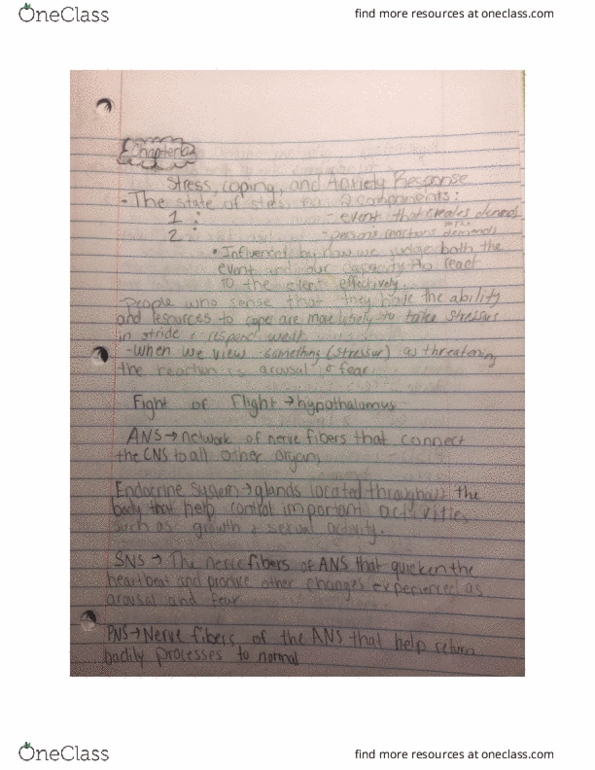 OneClass
find more resources at oneclass.com
Chapter
Stress, coping, and Anxiety Response
- The state of stress has 2 components:
1: - event that creates demands
2: - persons reactions demands
• Influenced by how we judge both the
event and our capacity to react
to the event effectively.
People who sense that they have the ability
and resources to cope are more likely to take stressors
in stride & respond well.
- when we view something (stressor) as threatening
the reaction is arousal & fear
Fight or Flight → hypothalumus
ANS → network of nerve fibers that connect
the CNS to all other organs
Endocrine System → glands located throughout the
body that help control important activities
such as growth & sexual activity.
SNS → The nerve fibers of ANS that quicken the
heartbeat and produce other changes experienced as
arousal and fear
PNS → Nerve fibers of the ANS that help return
bodily processes to normal
OneClass
find more resources at oneclass.com